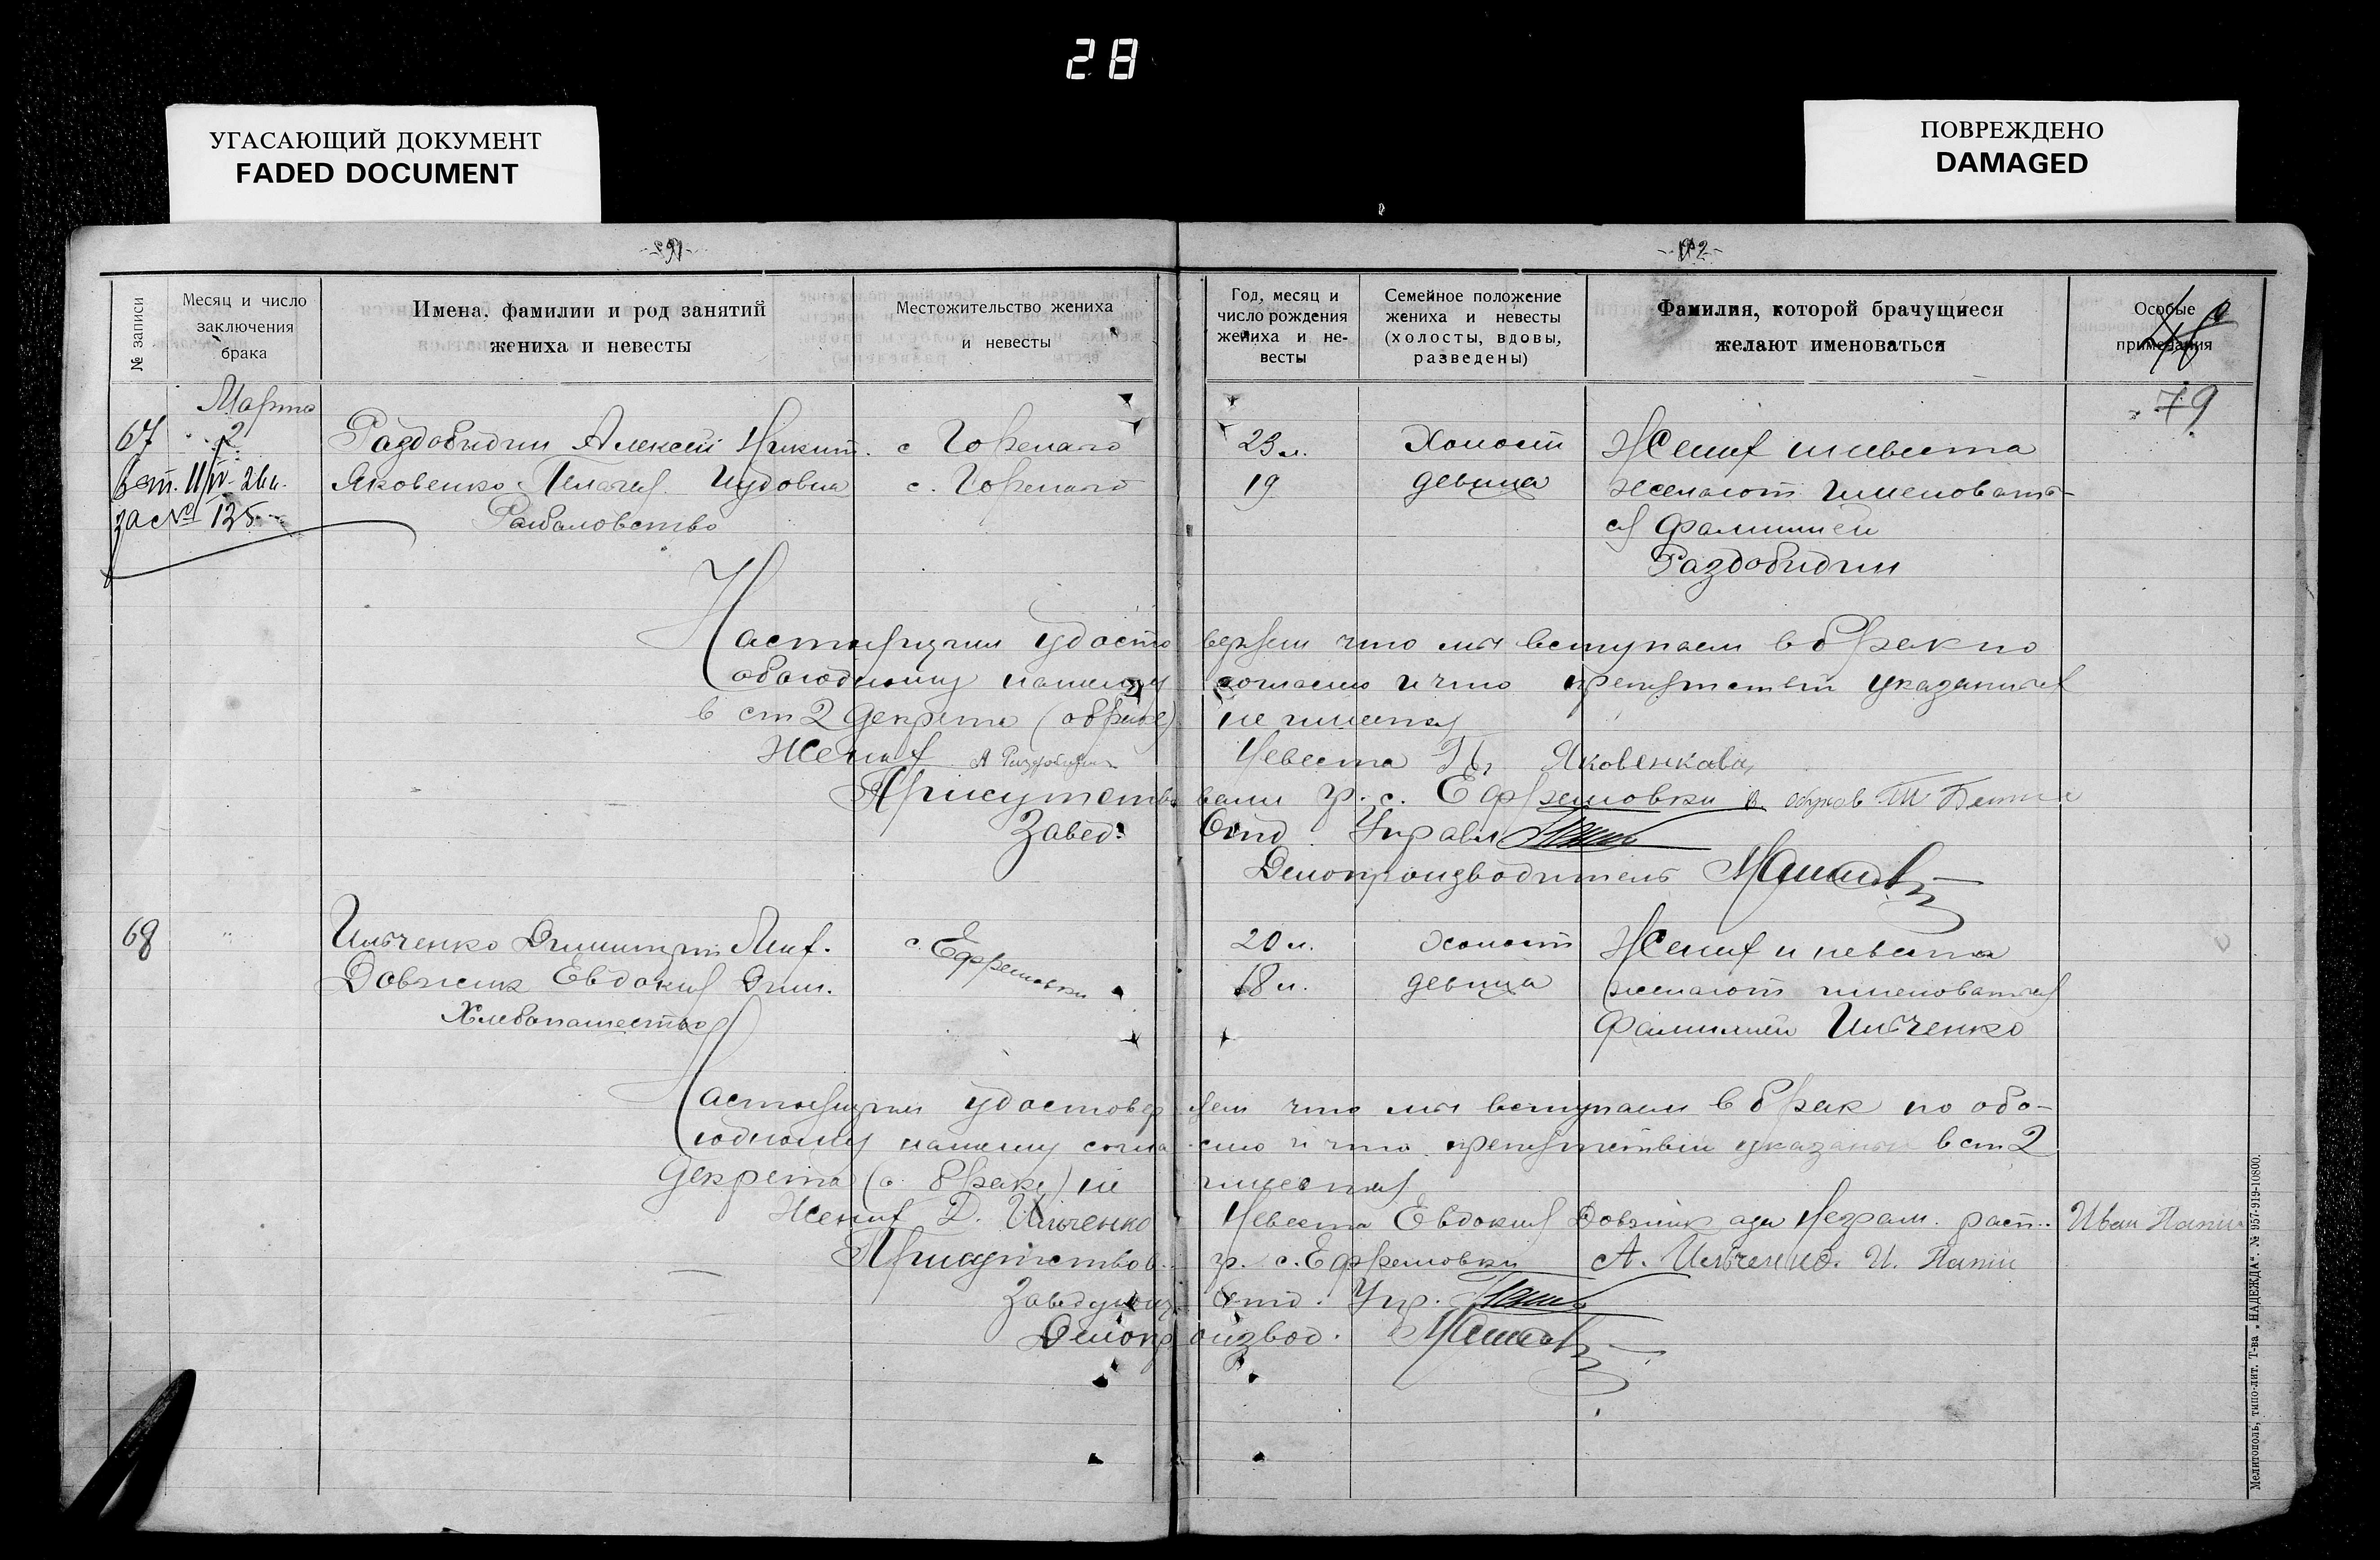 28
УГАСАЮЩИЙ ДОКУМЕНТ
FADED DOCUMENT
ПОВРЕЖДЕНО
DAMAGED
№ записи
Месяц и число заключения брака
Имена, фамилии и род занятий жениха и невесты
Местожительство жениха и невесты
Год, месяц и число рождения жениха и не-весты
Семейное положение жениха и невесты (холосты, вдовы, разведены)
Фамилия, которой брачущиеся желают именоваться
Особые примечания
79
Марта
67 2 Раздобудин Алексей Никит. с Горелаго 23 л. Холост Жених и невеста
Яковенко Пелагея с. Горелаго 19 девица желают именовать-
за № 135 ся фамилией
Раздобудин
Настоящим удостоверяем что мы вступаем в брак по
обоюдному нашему согласию и что препятствий указаных
в ст 2 декрета (о браке) не имеется
Жених Невеста Яковенкова
Присутствовали гр. с. Ефремовки
Завед. Отд Управл
Делопроизводитель
68 " Ильченко Димитрий с. Ефремовки 20 л. холост Жених и невеста
Довжик Евдокия Дим. 18 л. девица желают именоваться
Хлебопашество фамилией Ильченко
Настоящим удостоверяем что мы вступаем в брак по обо-
юдному нашему согласию и что препятствий указаных в ст 2
декрета (о браке) не имеется
Жених Д. Ильченко Невеста Евдокия Довжик а за неграм. расп. Иван
Присутствов. гр. с. Ефремовки А. Ильченко. И.
Заведующ Отд. Упр.
Делопроизвод.
Мелитополь, типо-лит. Т-ва „НАДЕЖДА“. № 957-919-10800.